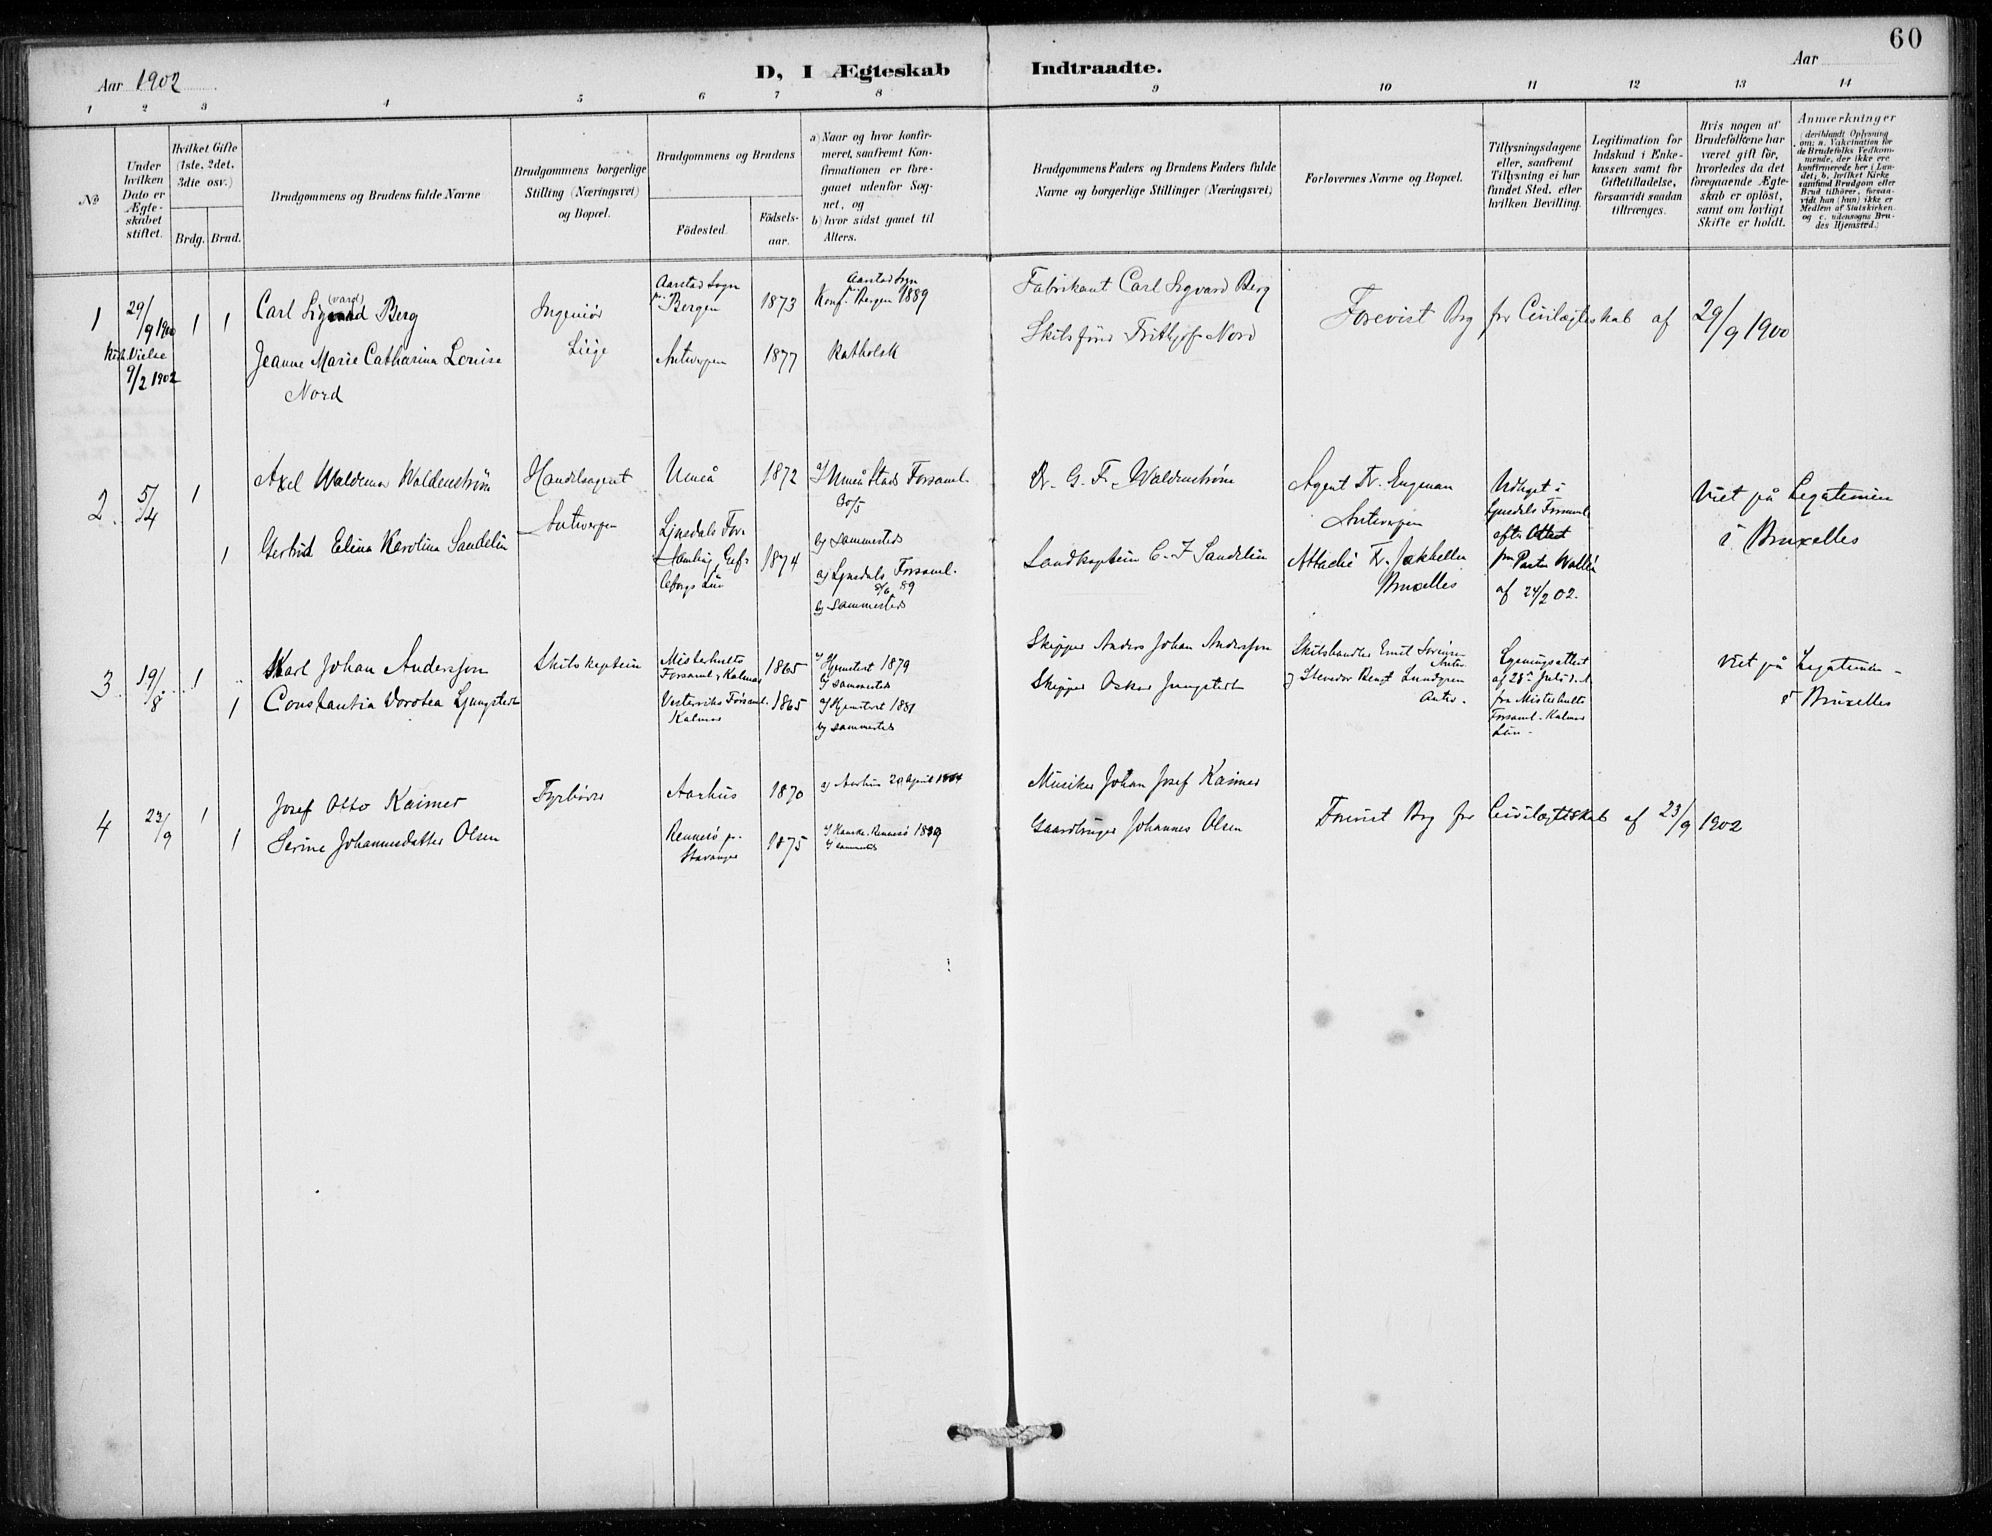 60
Aar 1902
D, I Ægteskab Indtraadte.
Aar
1 2 3 4 5 6 7 8 9 10 11 12 13 14
No
Under hvilken Dato er Ægteskabet stiftet.
Hvilket Gifte (1ste, 2det, 3die osv.)
Brdg. Brud.
Brudgommens og Brudens fulde Navne
Brudgommens borgerlige Stilling (Næringsvei) og Bopæl.
Brudgommens og Brudens
Födested.
Födselsaar.
a) Naar og hvor konfirmeret, saafremt Konfirmationen er foregaaet udenfor Sognet, og
b) hvor sidst gaaet til Alters.
Brudgommens Faders og Brudens Faders fulde Navne og borgerlige Stillinger (Næringsvei)
Forlovernes Navne og Bopæl.
Tillysningsdagene eller, saafremt Tillysning ei har fundet Sted, efter hvilken Bevilling.
Legitimation for Indskud i Enkekassen samt for Giftetilladelse, forsaavidt saadan tiltrænges.
Hvis nogen af Brudefolkene har været gift för, hvorledes da det foregaaende Ægteskab er oplöst, samt om lovligt Skifte er holdt.
Anmærkninger
(deriblandt Oplysning om: a. Vakcination for de Brudefolks Vedkommende, der ikke ere konfirmerede her i Landet; b. hvilket Kirkesamfund Brudgom eller Brud tilhörer, forsaavidt han (hun) ikke er Medlem af Statskirken og c. udensogns Brudes Hjemsted.)
1
29/9 1900
Kirk. Vielse
9/2 1902
1 1
Carl Sigvard Berg
(vard)
Jeanne Marie Catharina Louise
Nord
Ingeniör
Liége
Aarstad Sogn
Bergen
1873
Antwerpen
1877
Aarstad Sogn
Konf. Bergen 1889
Katholsk
Fabrikant Carl Sigvard Berg
Skibsförer Frithjof Nord
Forevist Brg for Civilægteskab af 29/9 1900
2.
5/4
1
1
Axel Waldemar Waldenström
Gertrud Elina Karolina Sandelin
Handelsagent
Antwerpen
Umeå
1872
Ljusdals Församling, Gefleborgs Län
1874
a) Umeå Stads Forsaml.
30/5
b) sammesteds
a) Ljusdals Forsaml.
89
b) sammesteds
Dr. G. F. Waldenström
Landkaptein C. J. Sandelin
Agent Dr. Engeman
Antwerpen
Attaché Fr.
Bruxelles
Udlyset i
Ljusdals Forsaml
eft. Attest
fra Pastor Wallin
af 24/2 02.
Viet på Legationen
i Bruxelles
3
19/8
1
1
Karl Johan Andersson
Constantia Dorotea Ljungstedt
Skibskaptein
Misterhults
Forsaml, Kalmar
1865
Vesterviks Församl.
Kalmar
1865
a) Hjemstet 1879
b) sammesteds
a) Hjemstet 1881
b) sammesteds
Skipper Anders Johan Andersson
Skipper Oskar Jungstedt
Skibshandler Ernst Sörensen
Antw.
og Stevedor Bengt Lundgren
Antw.
Lysningsattest
af 28de Juli d. A.
fra Misterhults
Forsaml. Kalmar
Län.
Viet på Legationen
i Bruxelles
4
23/9
1
1
Josef Otto Kaimer
Serine Johannesdatter Olsen
Fyrböder
Aarhus
1870
Rennesö pr.
Stavanger
1875
a) Aarhus 20 April 1884
Rennesö 1889
b) sammesteds
Musiker Johan Josef Kaimer
Gaardbruger Johannes Olsen
Forevist Brg for Civilægteskab af 23/9 1902